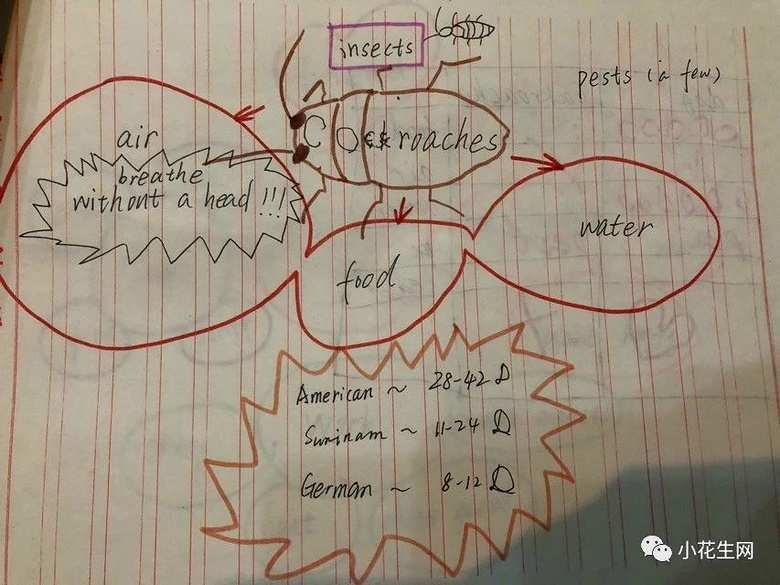 insects
pests (a few)
Cockroaches
air
breathe
without a head !!!
water
food
American ~ 28-42 D
Surinam ~ 11-24 D
German ~ 8-12 D
小花生网